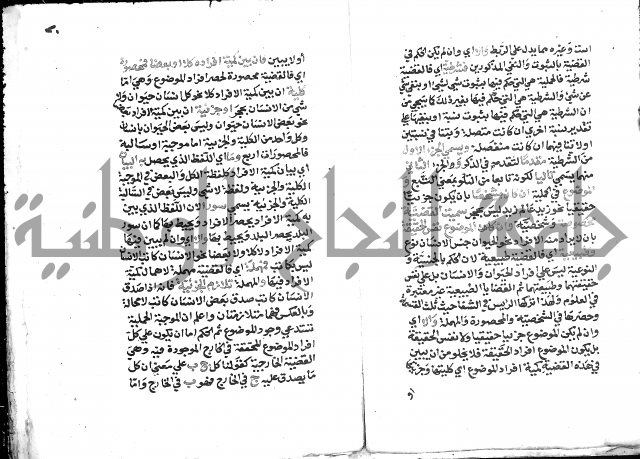 است وغيره مما يدل على الربط والا اي وان لم يكن الحكم في
القضية بالثبوت والنفي المذكورين فشرطية اي فالقضية
شرطية فالحملية هي التي حكم فيها بثبوت شي لشي او بنفي شي
عن شي والشرطية هي التي حكم فيها بغير ذلك
ان الشرطية هي التي حكم فيها بثبوت نسبة او بنفيها على
تقدير نسبة اخرى ان كانت متصلة وبتنافي نسبتين
او لا تنافيهما ان كانت منفصلة ويسمى الجزء الاول
من الشرطية مقدما لتقدمه في الذكر والجزء الثاني
منها يسمى تاليا لكونه تابعا من التلو بمعنى التبع و
الموضوع في كلية ان كان
حقيقيا نحو زيد
شخصية وان كان الموضوع نفس الحقيقة
بان لا يراد منه الافراد نحو الحيوان جنس والانسان نوع
فالقضية طبيعية لان الحكم بالجنسية و
النوعية ليس على افراد الحيوان والانسان بل على نفس
حقيقتهما وطبيعتهما ثم القضايا الطبيعية غير معتبرة
في العلوم ولهذا تركها الرئيس في الشفا حيث ثلث القسمة
وحصرها في الشخصية والمحصورة والمهملة والا اي
وان لم يكن الموضوع جزئيا حقيقيا ولا نفس الحقيقة
بل يكون الموضوع افراد الحقيقة فلا يخلو من ان يبين
في هذه القضية كمية افراد الموضوع اي كليتها وجزئيتها
او
اولا يبين فان بين كمية افراده كلا او بعضا فمحصورة
اي فالقضية محصورة لحصر افراد الموضوع وهي اما
كلية ان بين كمية الافراد كلا نحو كل انسان حيوان ولا
شي من الانسان بحجر او جزئية ان بين كمية الافراد
نحو بعض الانسان حيوان وليس بعض الحيوان بانسان
وكل واحد من الكلية والجزئية اما موجبة او سالبة
فالمحصورات اربع وما اي اللفظ الذي يحصل به البيان
اي بيان كمية الافراد كلفظ الكل والبعض في الموجبة
الكلية والجزئية ولفظ لا شي وليس بعض في السالبة
الكلية والجزئية يسمى سورا لان اللفظ الذي يبين
به كمية الافراد يحصر الافراد ويحيط بها كما ان سور
البلد يحصر البلد ويحيط بها والا اي وان لم يبين فيها
كمية الافراد لا كلا ولا بعضا نحو الانسان كاتب الانسان
ليس بكاتب فمهملة اي فالقضية مهملة لاهمال كمية
الافراد فيها والمهملة تلازم الجزئية فانه اذا صدق
الانسان كاتب صدق بعض الانسان كاتب لا محالة
وبالعكس فهما متلازمتان واعلم ان الموجبة الحملية
تستدعي وجود الموضوع ثم الحكم اما ان يكون على كل
افراد الموضوع المحققة في الخارج الموجودة فيه وهي
القضية الخارجية كقولنا كل ج ب على معنى ان كل
ما يصدق عليه ج في الخارج فهو ب في الخارج واما
جامعة النجاح الوطنية